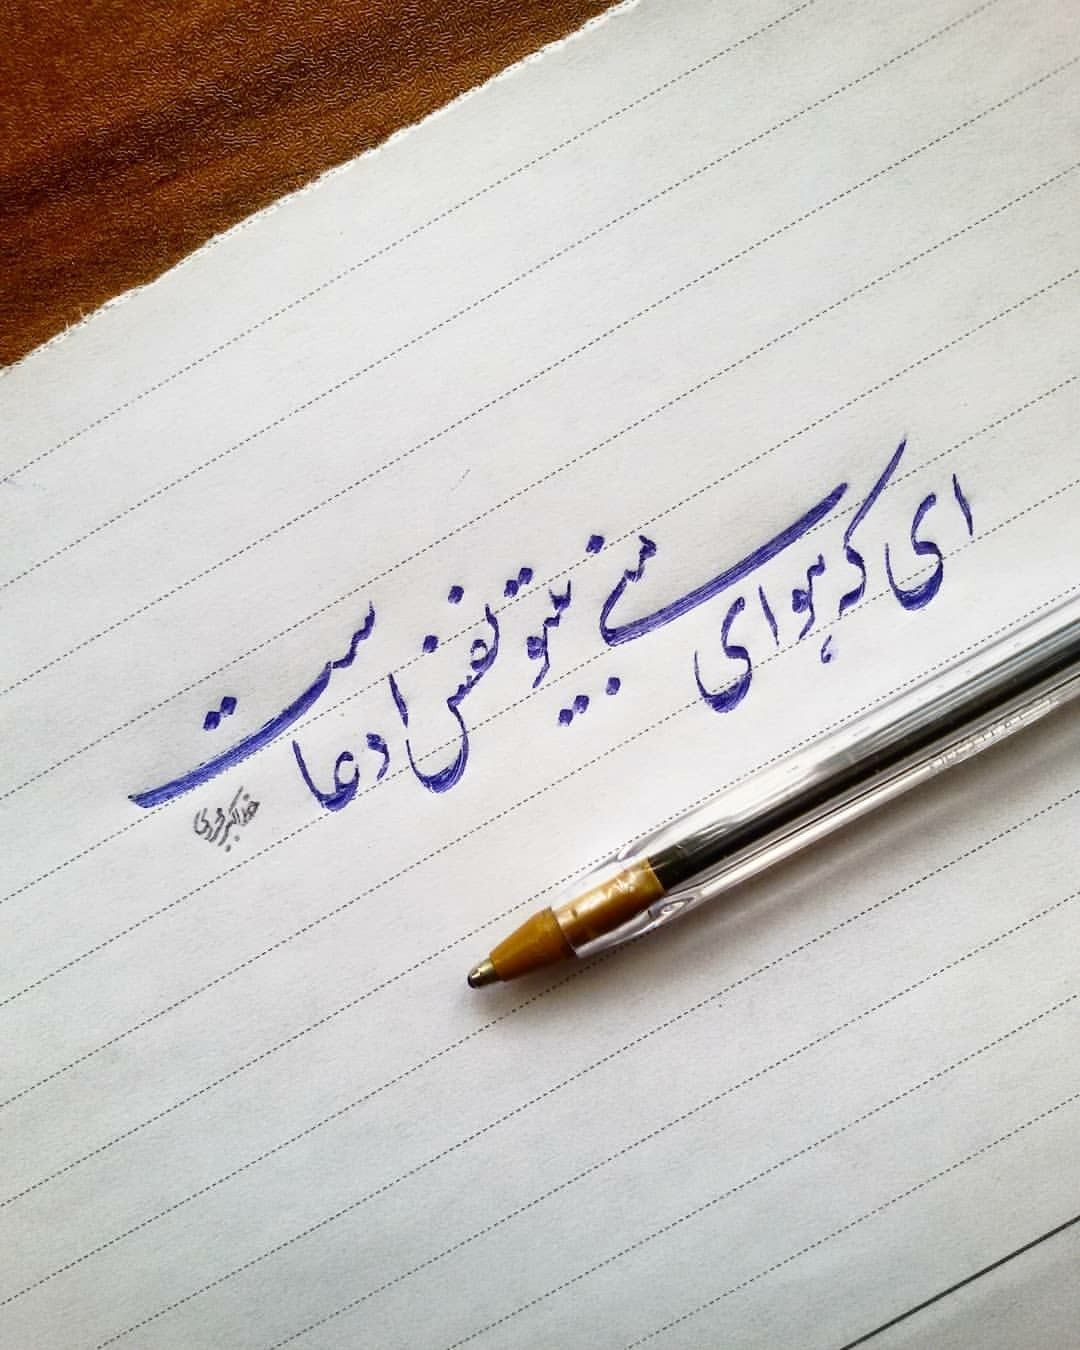 ای که هوای منی بیتو نفس ادعاست
خط اکبر